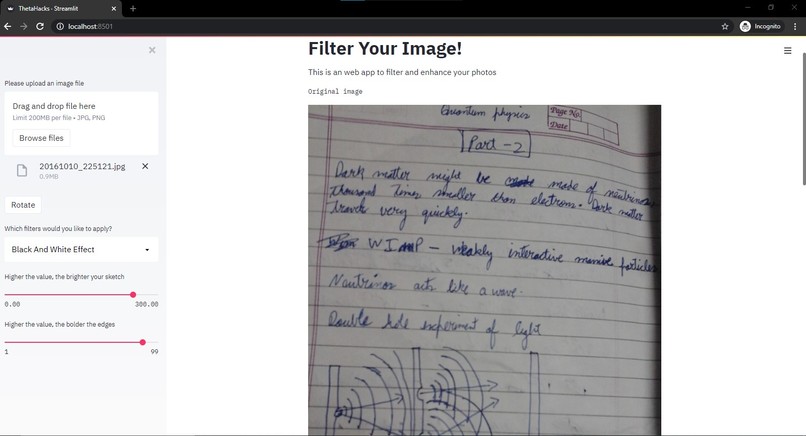 ThetaHacks - Streamlit
localhost:8501
Incognito
Please upload an image file
Drag and drop file here
Limit 200MB per file • JPG, PNG
Browse files
20161010_225121.jpg
0.9MB
Rotate
Which filters would you like to apply?
Black And White Effect
Higher the value, the brighter your sketch
0.00 380.00
Higher the value, the bolder the edges
1 99
Filter Your Image!
This is an web app to filter and enhance your photos
Original image
Quantom physics
Page No.
Date
Part - 2
Dark matter might be made of neutrinos
thousand times smaller than electrons. Dark matter
travels very quickly.
WIMP - weakly interactive massive particles
Neutrinos acts like a wave.
Double hole experiment of light